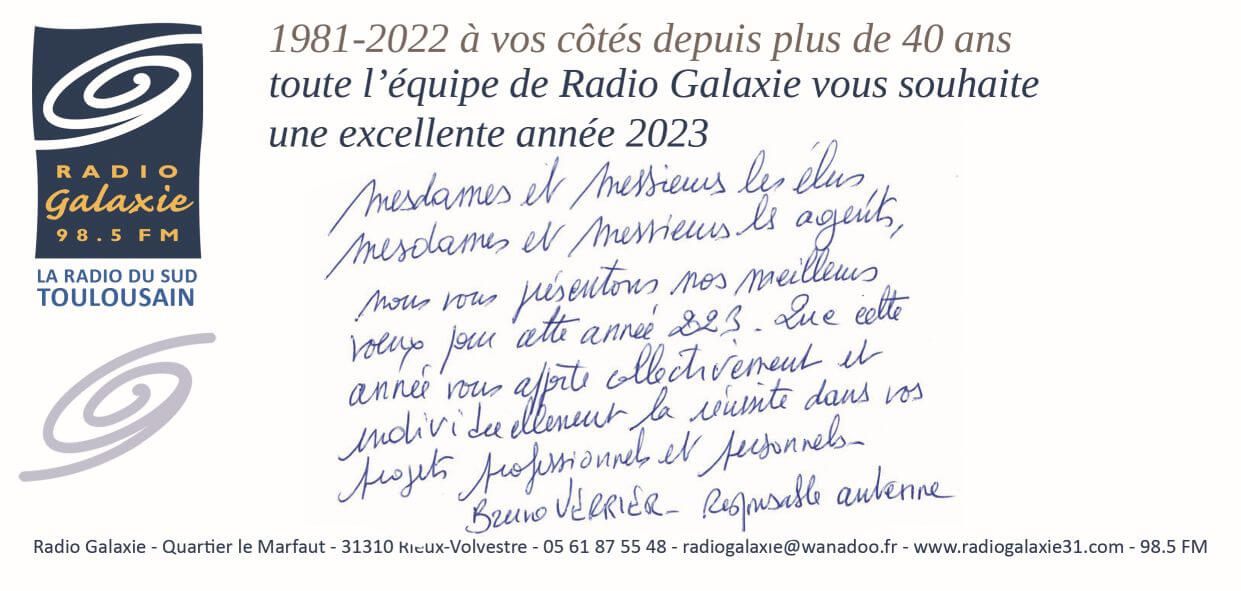 1981-2022 à vos côtés depuis plus de 40 ans
toute l’équipe de Radio Galaxie vous souhaite
une excellente année 2023
RADIO
Galaxie
98.5 FM
LA RADIO DU SUD
TOULOUSAIN
Mesdames et Messieurs les élus,
Mesdames et Messieurs les agents,
nous vous présentons nos meilleurs
voeux pour cette année 2023. Que cette
année vous apporte collectivement et
individuellement la réussite dans vos
projets professionnels et personnels-
Bruno VERRIER- Responsable antenne
Radio Galaxie - Quartier le Marfaut - 31310 Rieux-Volvestre - 05 61 87 55 48 - radiogalaxie@wanadoo.fr - www.radiogalaxie31.com - 98.5 FM